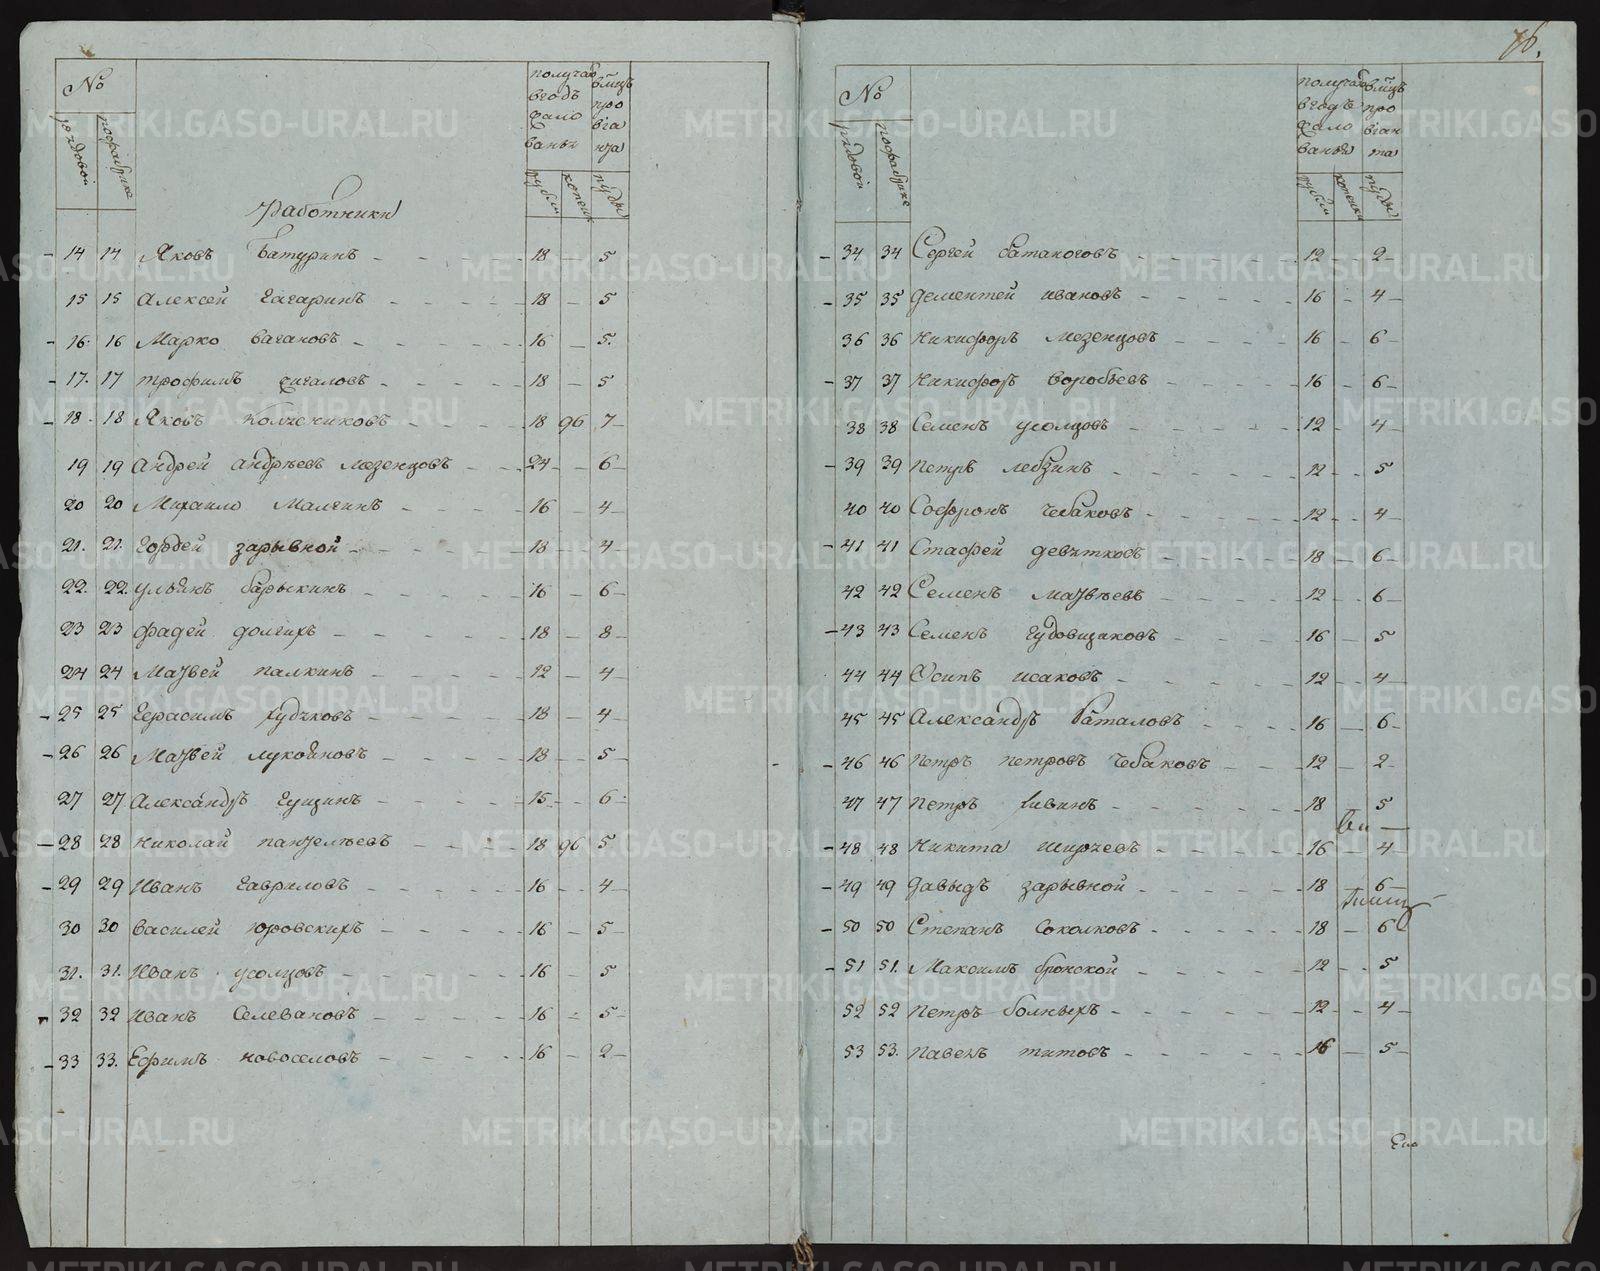 №
рядовой
пофабрике
получаютъ
вгодъ
жало
ванья
вмцъ
про
віа
нта
рубли
копеик
пуды
Работники
14 14 Яковъ Батуринъ 18 5
15 15 Алексей Гагаринъ 18 5
16 16 Марко Вагановъ 16 5
17 17 трофимъ Жигаловъ 18 5
18 18 Яковъ Колчениковъ 18 96 7
19 19 Андрей Андрѣевъ Мезенцовъ 24 6
20 20 Михаило Малгинъ 16 4
21 21 Гордей зарывной 18 4
22 22 ульянъ барыскинъ 16 6
23 23 фадей долгихъ 18 8
24 24 Матвей палкинъ 12 4
25 25 Герасимъ Худяковъ 18 4
26 26 Матвей лукояновъ 18 5
27 27 Александръ Гущинъ 15 6
28 28 Николай пантелѣевъ 18 96 5
29 29 Иванъ Гавриловъ 16 4
30 30 Василей Юровскихъ 16 5
31 31 Иванъ усолцовъ 16 5
32 32 Иванъ Селевановъ 16 5
33 33 Ефимъ новоселовъ 16 2
76.
№
рядовой
пофабрике
получаютъ
вгодъ
жало
ванья
вмцъ
про
віан
та
рубли
копеики
пуды
34 34 Сергей батаноговъ 12 2
35 35 дементей ивановъ 16 4
36 36 Никифоръ Мезенцовъ 16 6
37 37 Никифоръ Воробьевъ 16 6
38 38 Семенъ усолцовъ 12 4
39 39 петръ лебзинъ 12 5
40 40 Софронъ Чебаковъ 12 4
41 41 Стафей девятковъ 18 6
42 42 Семенъ Матвѣевъ 12 6
43 43 Семенъ Гудовщиковъ 16 5
44 44 Осипъ исаковъ 12 4
45 45 Александръ баталовъ 16 6
46 46 Петръ петровъ Чебаковъ 12 2
47 47 Петръ Хивинъ 18 5
48 48 Никита ширяевъ 16 4
49 49 давыдъ зарывной 18 6
50 50 Степанъ Соколковъ 18 6
51 51 Максимъ бронской 12 5
52 52 Петръ болныхъ 12 4
53 53 павелъ титовъ 16 5
METRIKI.GASO-URAL.RU